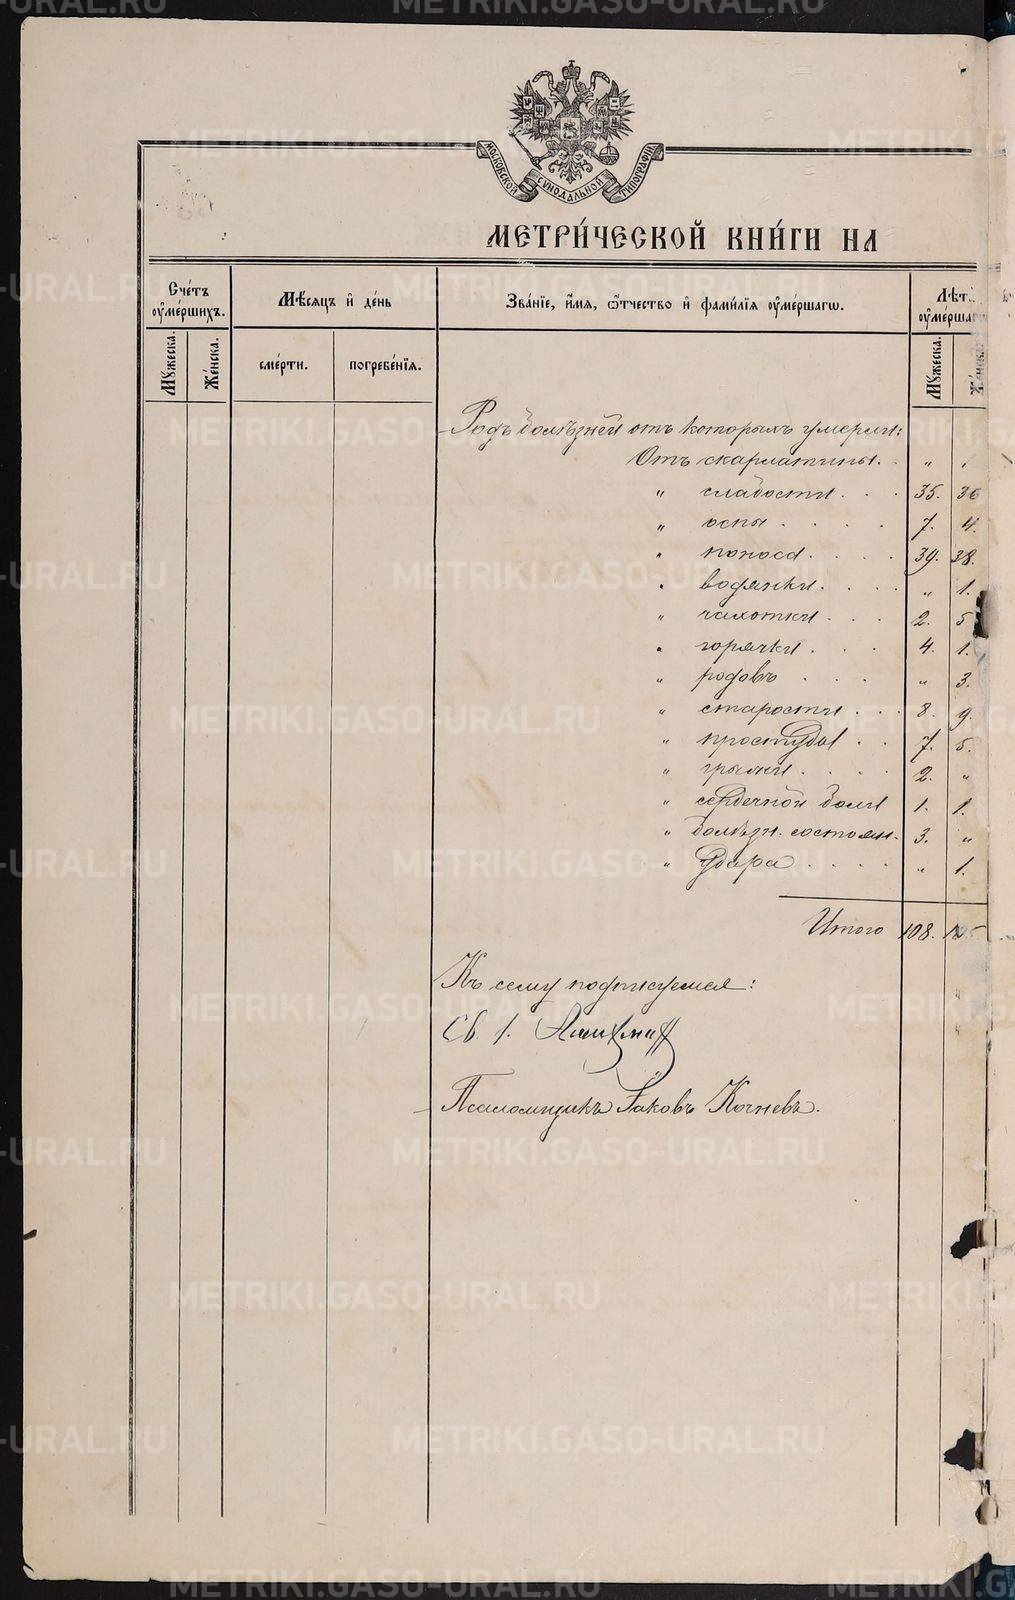 МОСКОВСКОЙ СѴНОДАЛЬНОЙ ТИПОГРАФИИ
МЕТРИ́ЧЕСКОЙ КНИ́ГИ НА
Сче́тъ ᲂу҆ме́ршихъ.
Мѣ́сяцъ и҆ де́нь
Зва́нїе, и҆́мѧ, ѻ҆́тчество и҆ фами́лїѧ ᲂу҆ме́ршагѡ.
Лѣт ᲂу҆ме́ршаг
Мꙋ́жеска.
Же́нска.
сме́рти.
погребе́нїѧ.
Мꙋ́жеска.
Же́нска
Родъ болѣзней отъ которыхъ умерли:
Отъ скарлатины. „
„ слабости . . . 35. 36
„ оспы . . . . 7. 4.
„ поноса . . . . 39. 38.
„ водянки . . . . „ 1.
„ чахотки . . . 2. 5
„ горячки . . . 4. 1.
„ родовъ . . . „ 3.
„ старости . . . 8. 9.
„ простуды . . 7. 5.
„ грыжи . . . . 2. „
„ сердечной боли 1. 1.
„ болѣзн. состоян. 3. „
„ удара . . . . „ 1.
Итого 108.
Къ сему подписуемся:
Св. І.
Псаломщикъ Іаковъ Кочневъ.
METRIKI.GASO-URAL.RU